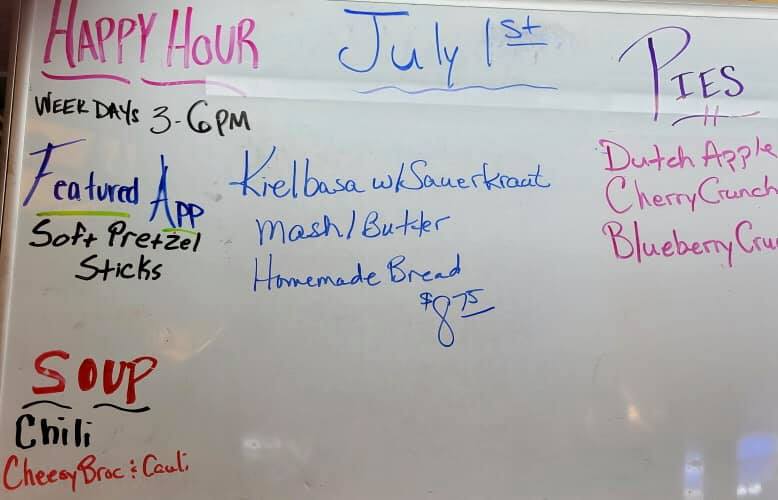 HAPPY HOUR
WEEKDAYS 3-6PM
Featured APP
Soft Pretzel
Sticks
SOUP
Chili
Cheesy Broc & Cauli
July 1st
Kielbasa w/Sauerkraut
Mash/Butter
Homemade Bread
$8.75
PIES
Dutch Apple
Cherry Crunch
Blueberry Cru